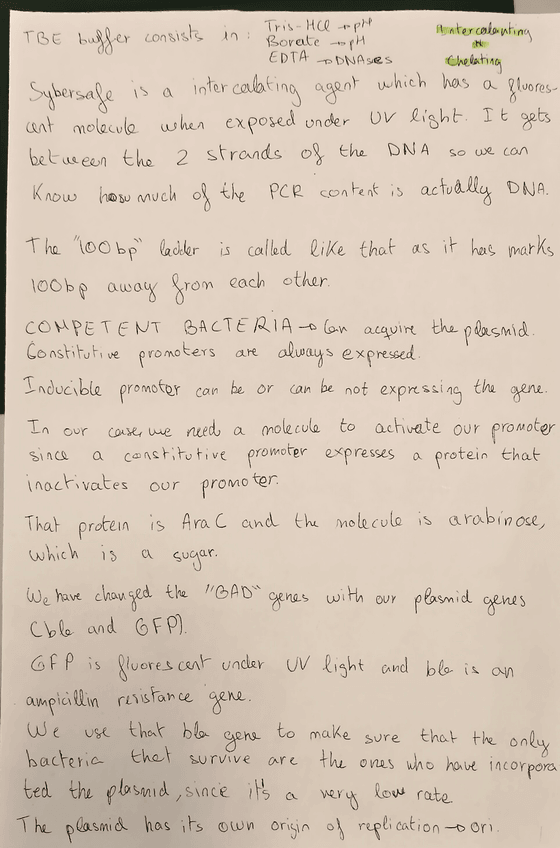 TBE buffer consists in: Tris-HCl → pH
Borate → pH
EDTA → DNAses
Intercalanting
≠
Chelating
Sybersafe is a intercalating agent which has a fluores-
cent molecule when exposed under UV light. It gets
between the 2 strands of the DNA so we can
Know how much of the PCR content is actually DNA.
The "100bp" ladder is called like that as it has marks
100bp away from each other.
COMPETENT BACTERIA → Can acquire the plasmid.
Constitutive promoters are always expressed.
Inducible promoter can be or can be not expressing the gene.
In our case, we need a molecule to activate our promoter
since a constitutive promoter expresses a protein that
inactivates our promoter.
That protein is AraC and the molecule is arabinose,
which is a sugar.
We have changed the "BAD" genes with our plasmid genes
(bla and GFP).
GFP is fluorescent under UV light and bla is an
ampicillin resistance gene.
We use that bla gene to make sure that the only
bacteria that survive are the ones who have incorpora
ted the plasmid, since it's a very low rate
The plasmid has its own origin of replication → ori.